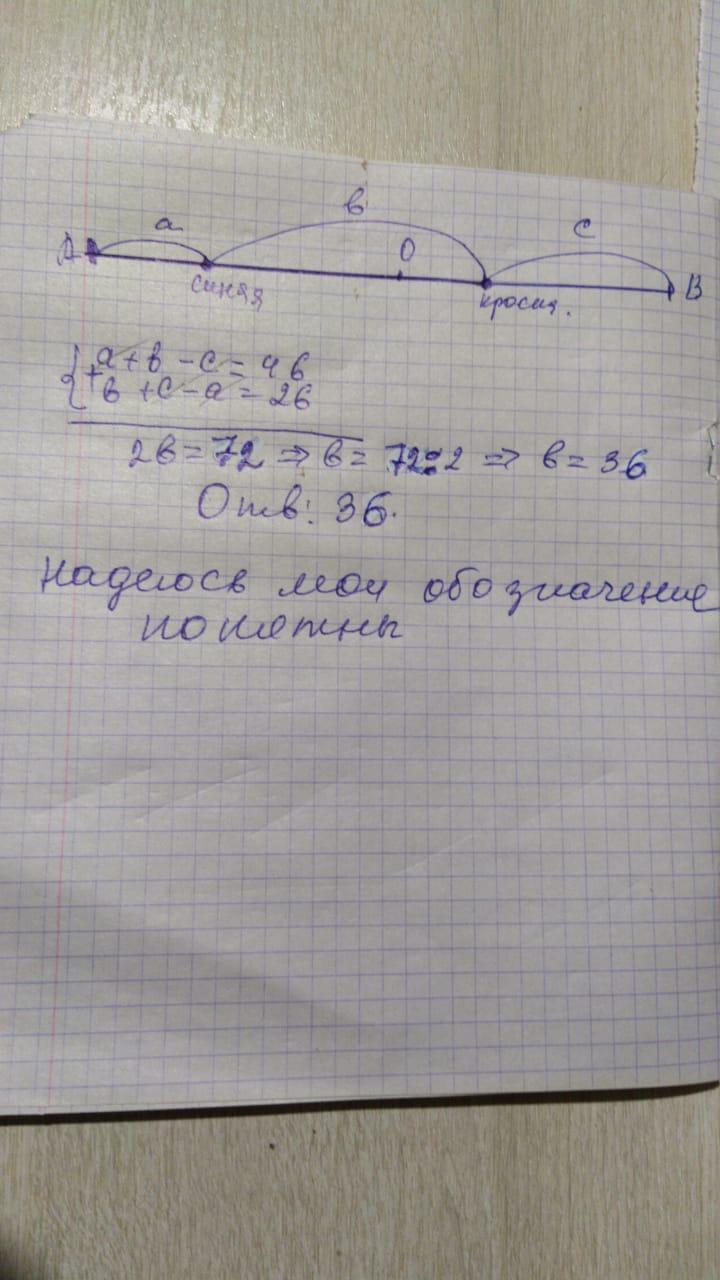 a в c
A синяя O красн. B
a + в - c = 46
+ в + c - a = 26
2в = 72 => в = 72:2 => в = 36
Отв: 36.
Надеюсь мои обозначение
понятны